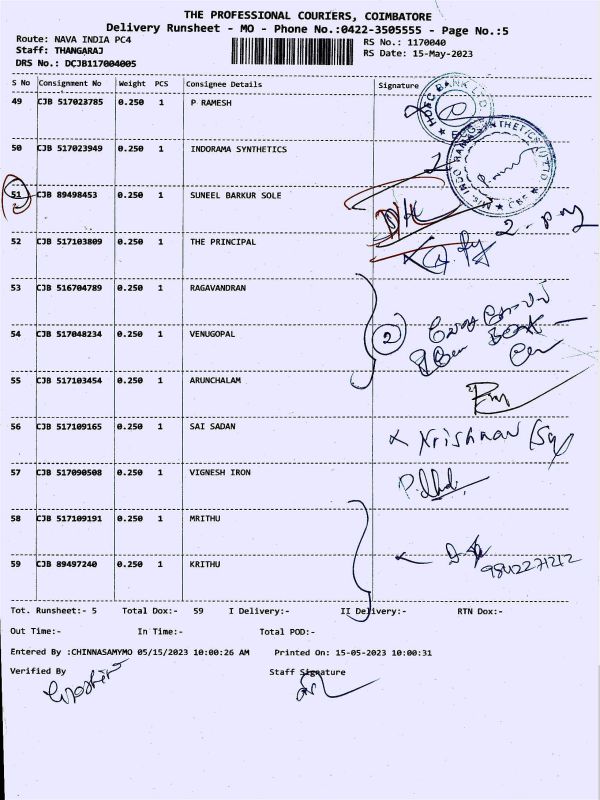 THE PROFESSIONAL COURIERS, COIMBATORE
Delivery Runsheet - MO - Phone No.:0422-3505555 - Page No.:5
Route: NAVA INDIA PC4
RS No.: 1170040
Staff: THANGARAJ
RS Date: 15-May-2023
DRS No.: DCJB117004005
S No Consignment No Weight PCS Consignee Details Signature
49 CJB 517023785 0.250 1 P RAMESH
50 CJB 517023949 0.250 1 INDORAMA SYNTHETICS
51 CJB 89498453 0.250 1 SUNEEL BARKUR SOLE
52 CJB 517103809 0.250 1 THE PRINCIPAL
53 CJB 516704789 0.250 1 RAGAVANDRAN
54 CJB 517048234 0.250 1 VENUGOPAL 2
55 CJB 517103454 0.250 1 ARUNCHALAM
56 CJB 517109165 0.250 1 SAI SADAN Krishnan
57 CJB 517090508 0.250 1 VIGNESH IRON
58 CJB 517109191 0.250 1 MRITHU
59 CJB 89497240 0.250 1 KRITHU 9842271212
Tot. Runsheet:- 5 Total Dox:- 59 I Delivery:- II Delivery:- RTN Dox:-
Out Time:- In Time:- Total POD:-
Entered By :CHINNASAMYMO 05/15/2023 10:00:26 AM Printed On: 15-05-2023 10:00:31
Verified By Staff Signature